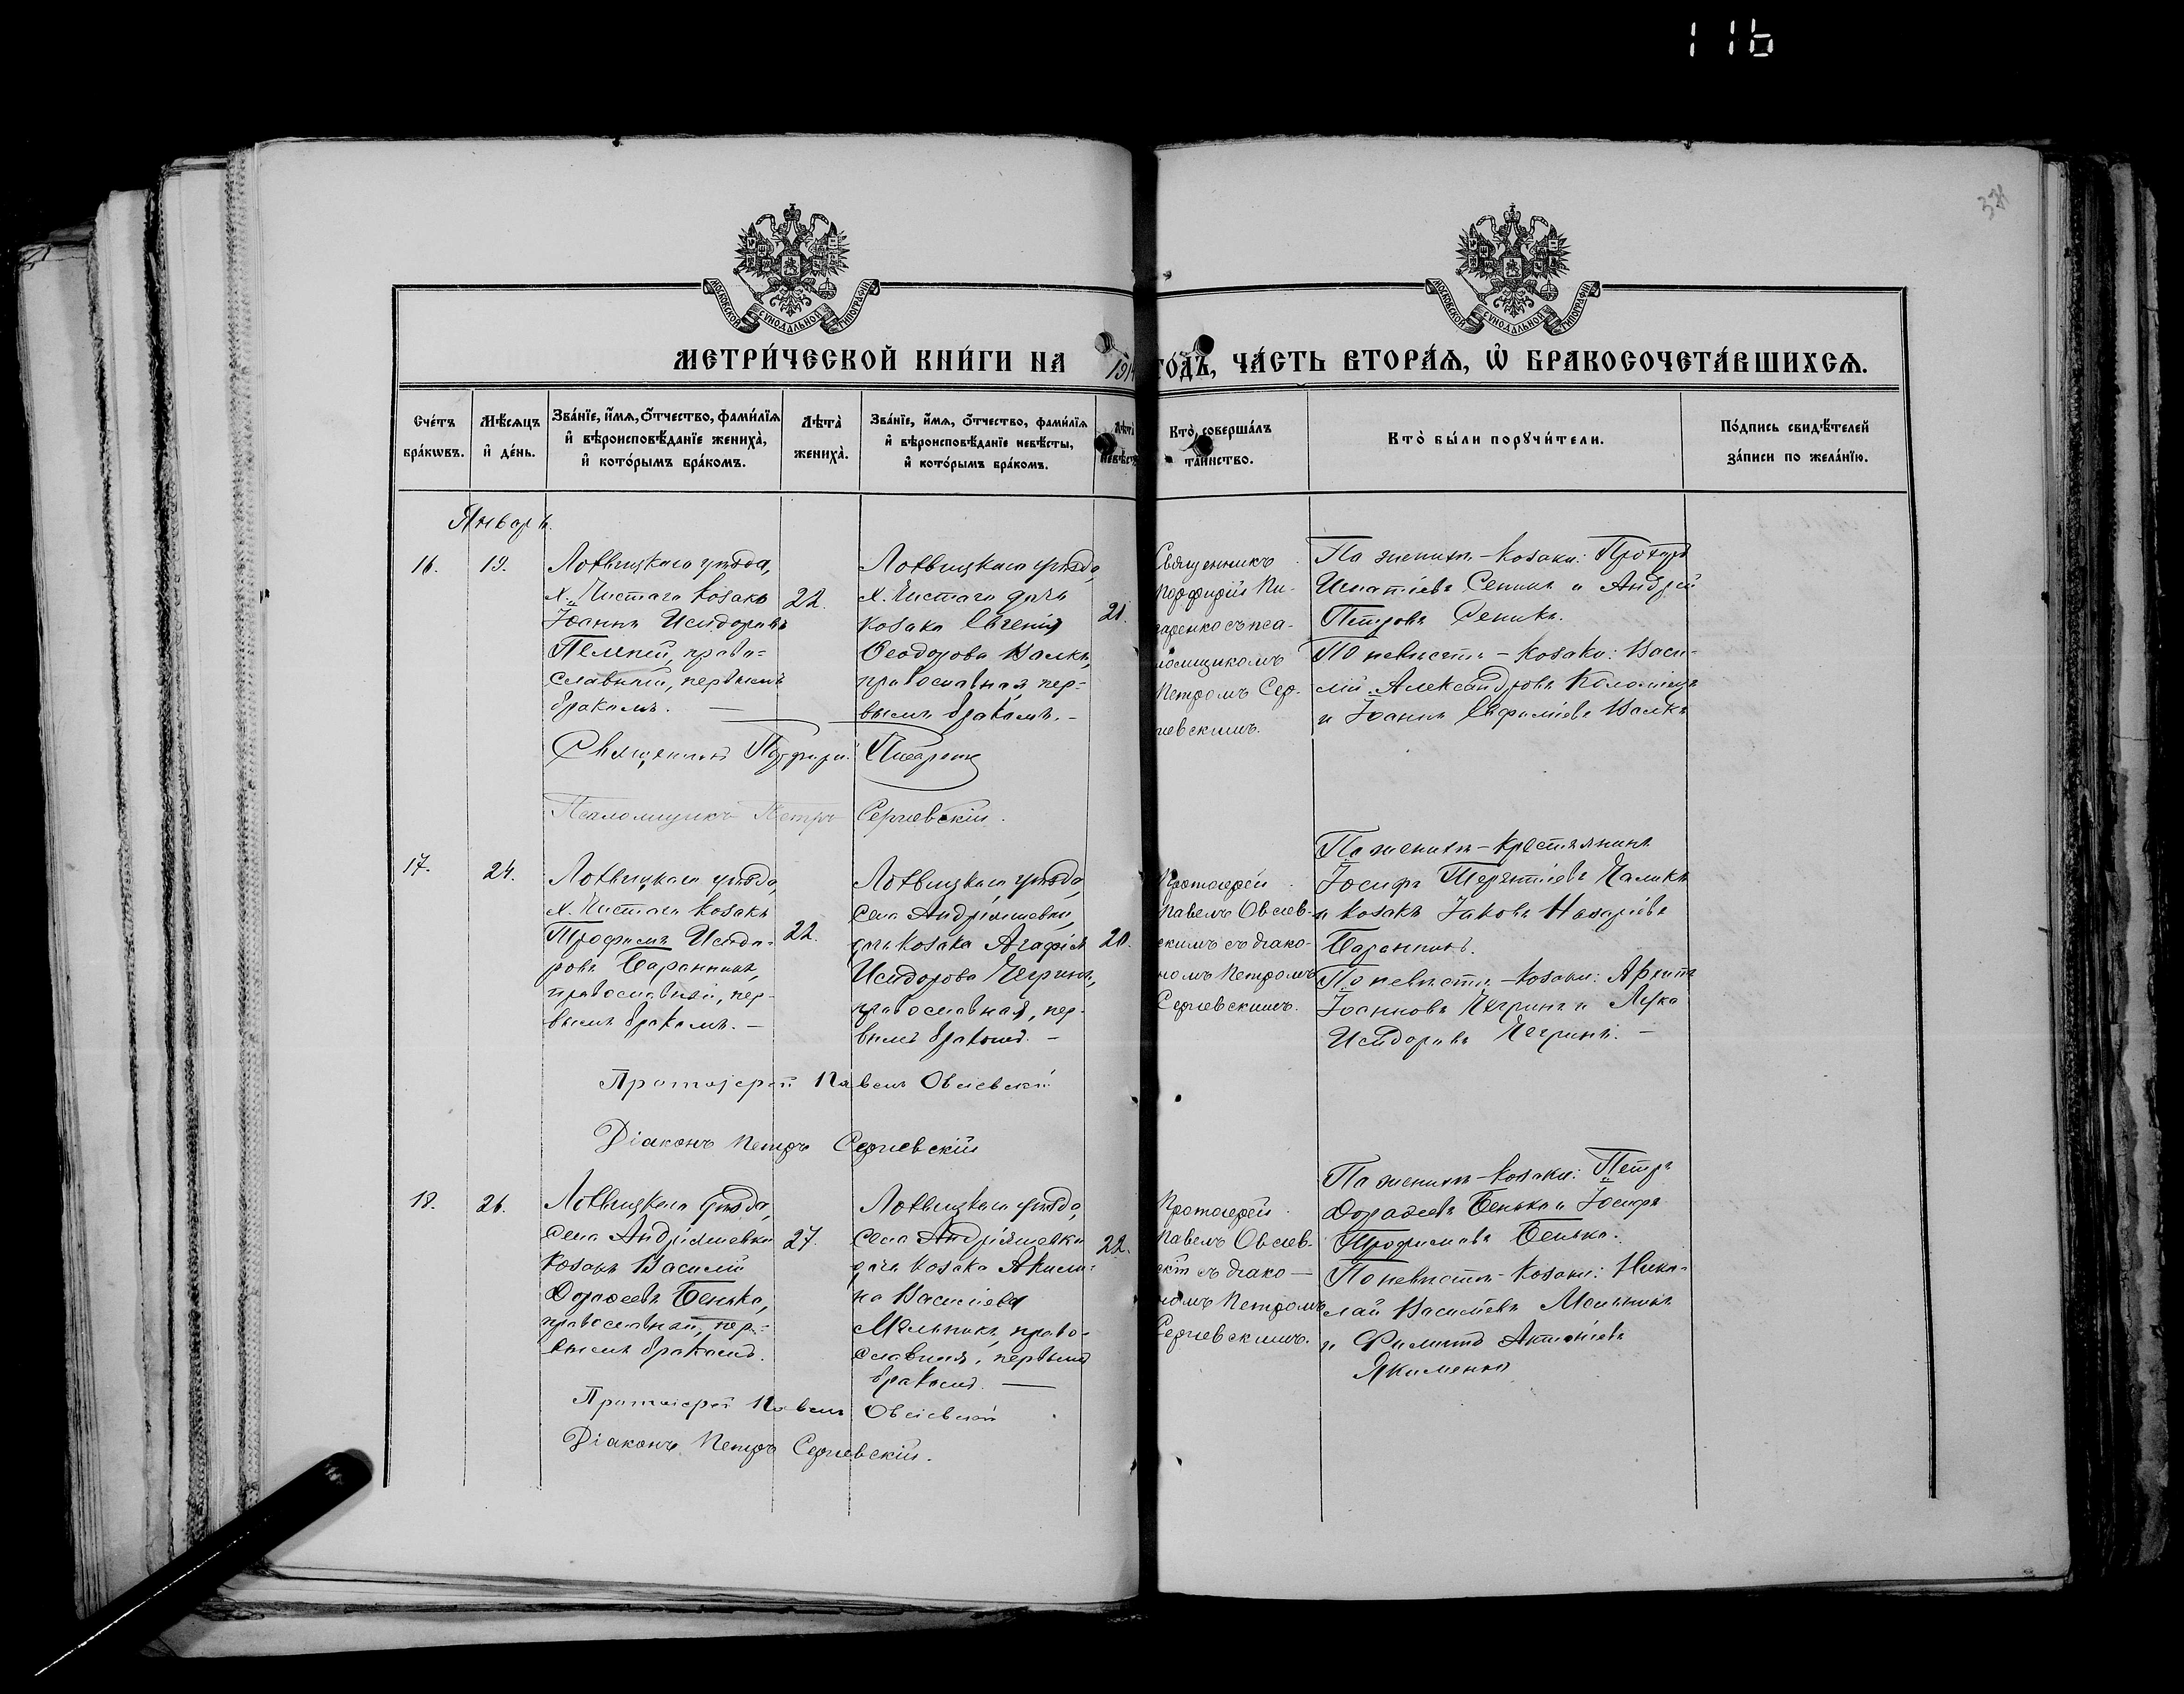 116
МОСКОВСКОЙ СѴНОДАЛЬНОЙ ТИПОГРАФІИ
МОСКОВСКОЙ СѴНОДАЛЬНОЙ ТИПОГРАФІИ
МЕТРИ́ЧЕСКОЙ КНИ́ГИ НА 1914 ГО́ДЪ, ЧА́СТЬ ВТОРА́Я, Ѽ БРАКОСОЧЕТА́ВШИХСѦ.
Сче́тъ бра́кѡвъ.
Мѣ́сѧцъ и҆ де́нь.
Зва́нїе, и҆́мѧ, ѻ҆́тчество, фами́лїѧ и҆ вѣроисповѣ́данїе жениха̀, и҆ кото́рымъ бра́комъ.
Лѣта̀ жениха̀.
Зва́нїе, и҆́мѧ, ѻ҆́тчество, фами́лїѧ и҆ вѣроисповѣ́данїе невѣ́сты, и҆ кото́рымъ бра́комъ.
Лѣта̀ невѣ́сты
Кто̀ соверша́лъ та́инство.
Кто̀ бы́ли порꙋчи́тели.
По́дпись свидѣ́телей за́писи по жела́нїю.
Январь.
16.
19.
Лохвицкаго уѣзда,
х. Чистаго козакъ
Іоаннъ Исидоровъ
Пелепей, право=
славный, первымъ
бракомъ. —
22.
Лохвицкаго уѣзда,
х. Чистаго дочь
козака Евгенія
Ѳеодорова Валка,
православная, пер=
вымъ бракомъ. -
21.
Священникъ
Порфирій Пи-
саренко съ пса-
ломщикомъ
Петромъ Сер-
гіевскимъ.
По женихѣ - козаки: Прохоръ
Игнатіевъ Сеникъ и Андрей
Петровъ Сеникъ.
По невѣстѣ - козаки: Васи-
лій Александровъ Коломіецъ
и Іоаннъ Евфиміевъ Валка
Священникъ Порфирій Писаренко
Псаломщикъ Петръ Сергіевскій.
17.
24.
Лохвицкаго уѣзда,
х. Чистаго козакъ
Трофимъ Исидо-
ровъ Баранникъ,
православный, пер-
вымъ бракомъ. -
22.
Лохвицкаго уѣзда,
села Андріяшевки,
дочь козака Агафія
Исидорова Чегринъ,
православная, пер-
вымъ бракомъ. -
20.
Протоіерей
Павелъ Овсіев-
скимъ съ діако-
номъ Петромъ
Сергіевскимъ.
По женихѣ - крестьянинъ
Іосифъ Терентіевъ
и козакъ Іаковъ Назаріевъ
Баранникъ.
По невѣстѣ - козаки: Архипъ
Іоанновъ Чегринъ и Лука
Исидоровъ Чегринъ. -
Протоіерей Павелъ Овсіевскій
Діаконъ Петръ Сергіевскій
18.
26.
Лохвицкаго уѣзда,
села Андріяшевки
козакъ Василій
Дороѳеевъ Бенько,
православный, пер-
вымъ бракомъ.
27.
Лохвицкаго уѣзда,
села Андріяшевки
дочь козака Акили-
на Василіева
Мельникъ, право-
славная, первымъ
бракомъ. —
22.
Протоіерей
Павелъ Овсіев-
скій съ діако-
номъ Петромъ
Сергіевскимъ.
По женихѣ - козаки: Петръ
Дороѳеевъ Бенько и Іосифъ
Трофимовъ Бенько.
По невѣстѣ - козаки: Нико-
лай Василіевъ Мельникъ
и Филиппъ Антоніевъ
Якименко
Протоіерей Павелъ Овсіевскій
Діаконъ Петръ Сергіевскій.